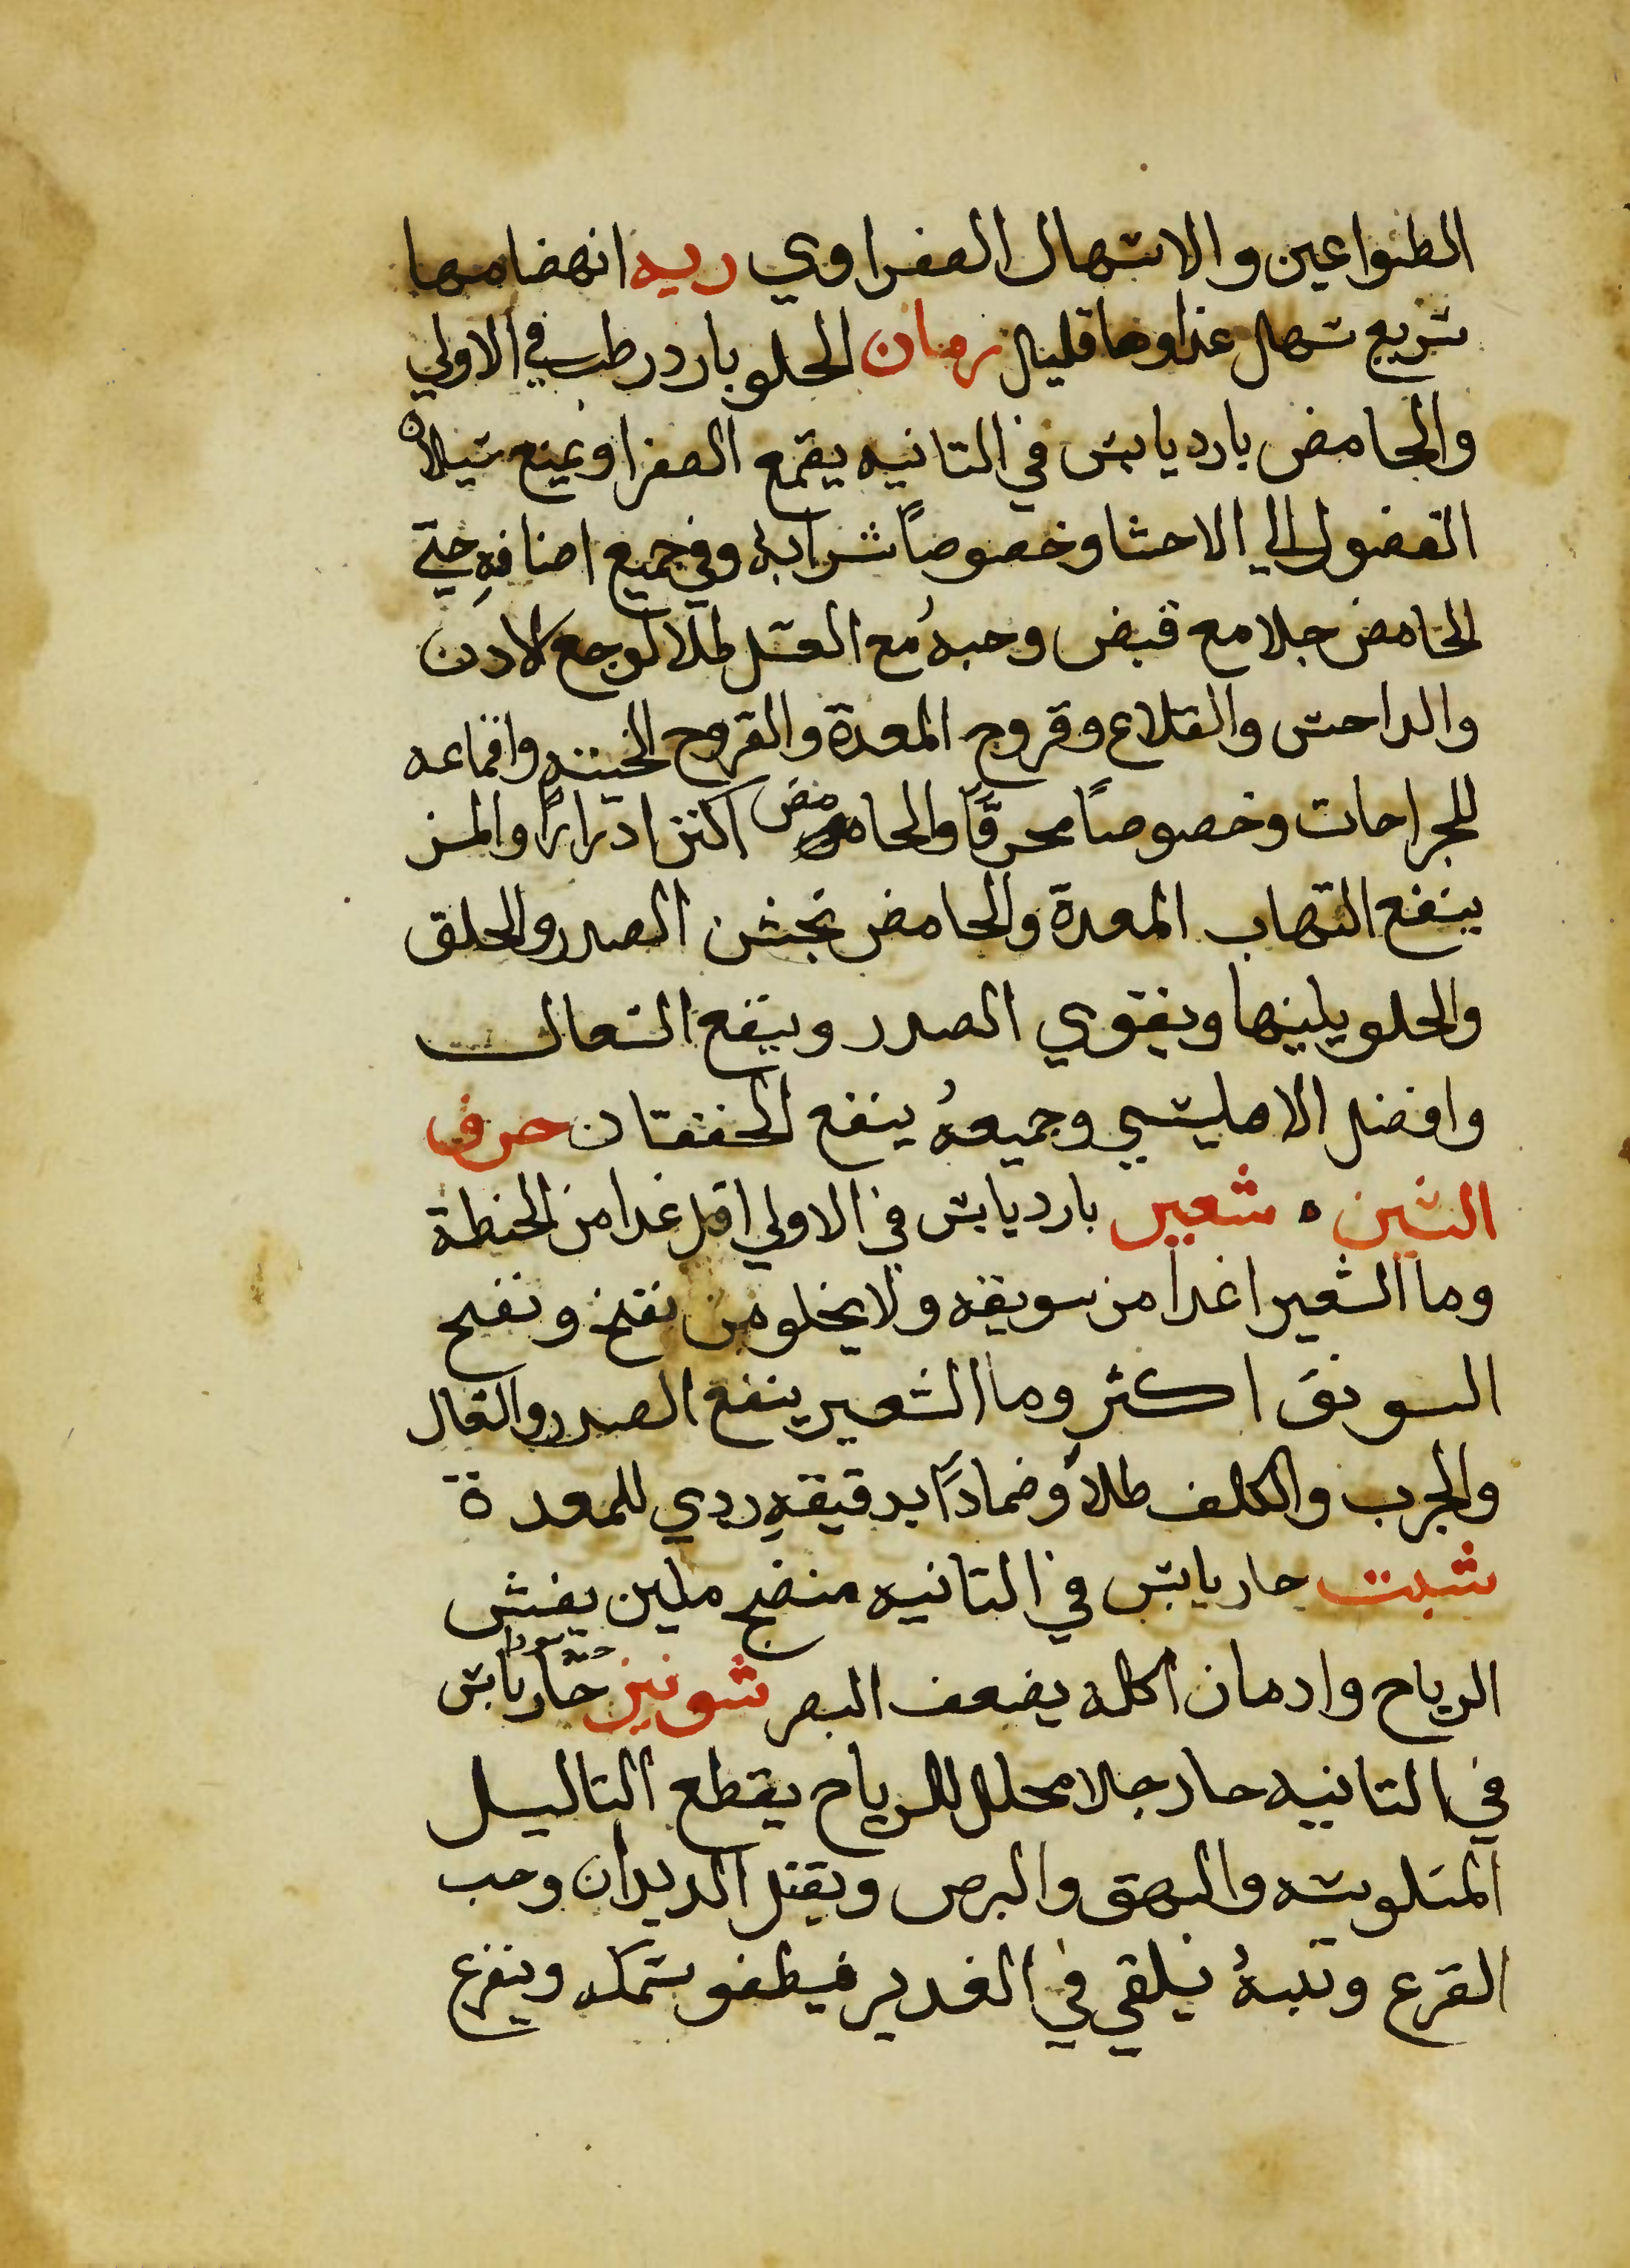 الطواعين والاسهال الصفراوي ريه انهضامها
سريع سهل غذاوها قليل رمان الحلو بارد رطب في الاولي
والحامض بارد يابس في التانيه يقمع الصفرا ويمنع سيلان
الفضول الي الاحشا وخصوصاً شرابه وفي جميع اصنافهِ حتي
الحامض جلا مع قبض وحبهُ مع العسل طلا لوجع الادن
والداحس والقلاع وقروح المعدة والقروح الخبيثه واقماعه
للجراحات وخصوصاً محرقاً والحامض اكثر ادراراً والمز
ينفع التهاب المعدة والحامض يخشن الصدر والحلق
والحلو يلينها ويقوي الصدر وينفع السعال
وافضل الامليسي وجميعهُ ينفع الخفقان حرف
الشين ه شعير بارد يابس في الاولي اقل غدا من الحنطة
وما الشعير اغدا من سويقه ولا يخلو من نفخ ونفخ
السويق اكثر وما الشعير ينفع الصدر والسعال
والجرب والكلف طلاً وضماداً بدقيقهِ ردي للمعدة
شبت حار يابس في التانيه منضج ملين يفش
الرياح وادمان اكله يضعف البصر شونيز حار يابس
في التانيه حاد جلا محلل للرياح يقطع التاليل
المنكوسه والبهق والبرص ويقتل الديدان وحب
القرع وتبنهُ يلقي في الغدير فيطفو سمكه وينفع